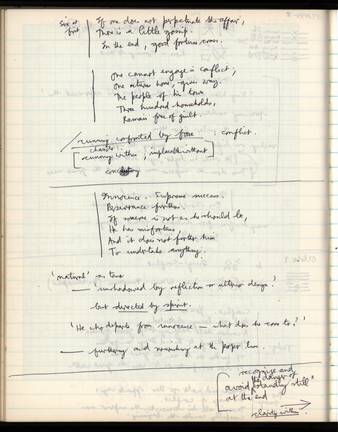 Six at first
If one does not perpetuate the affair,
There is a little gossip.
In the end, good fortune comes.
One cannot engage in conflict;
One returns home, gives way.
The people of his town,
Three hundred households,
Remain free of guilt
cunning confronted by force : conflict.
cunning within, implacable without
Innocence. Supreme success.
Perseverance furthers.
If someone is not as he should be,
He has misfortune,
And it does not further him
To undertake anything.
'natural' in tone
— 'unshadowed by reflection or ulterior design'
but directed by spirit.
'He who departs from innocence — what does he come to?'
— furthering and nourishing at the proper time.
recognise and
the danger of
avoid 'standing still'
at the end
clarity within